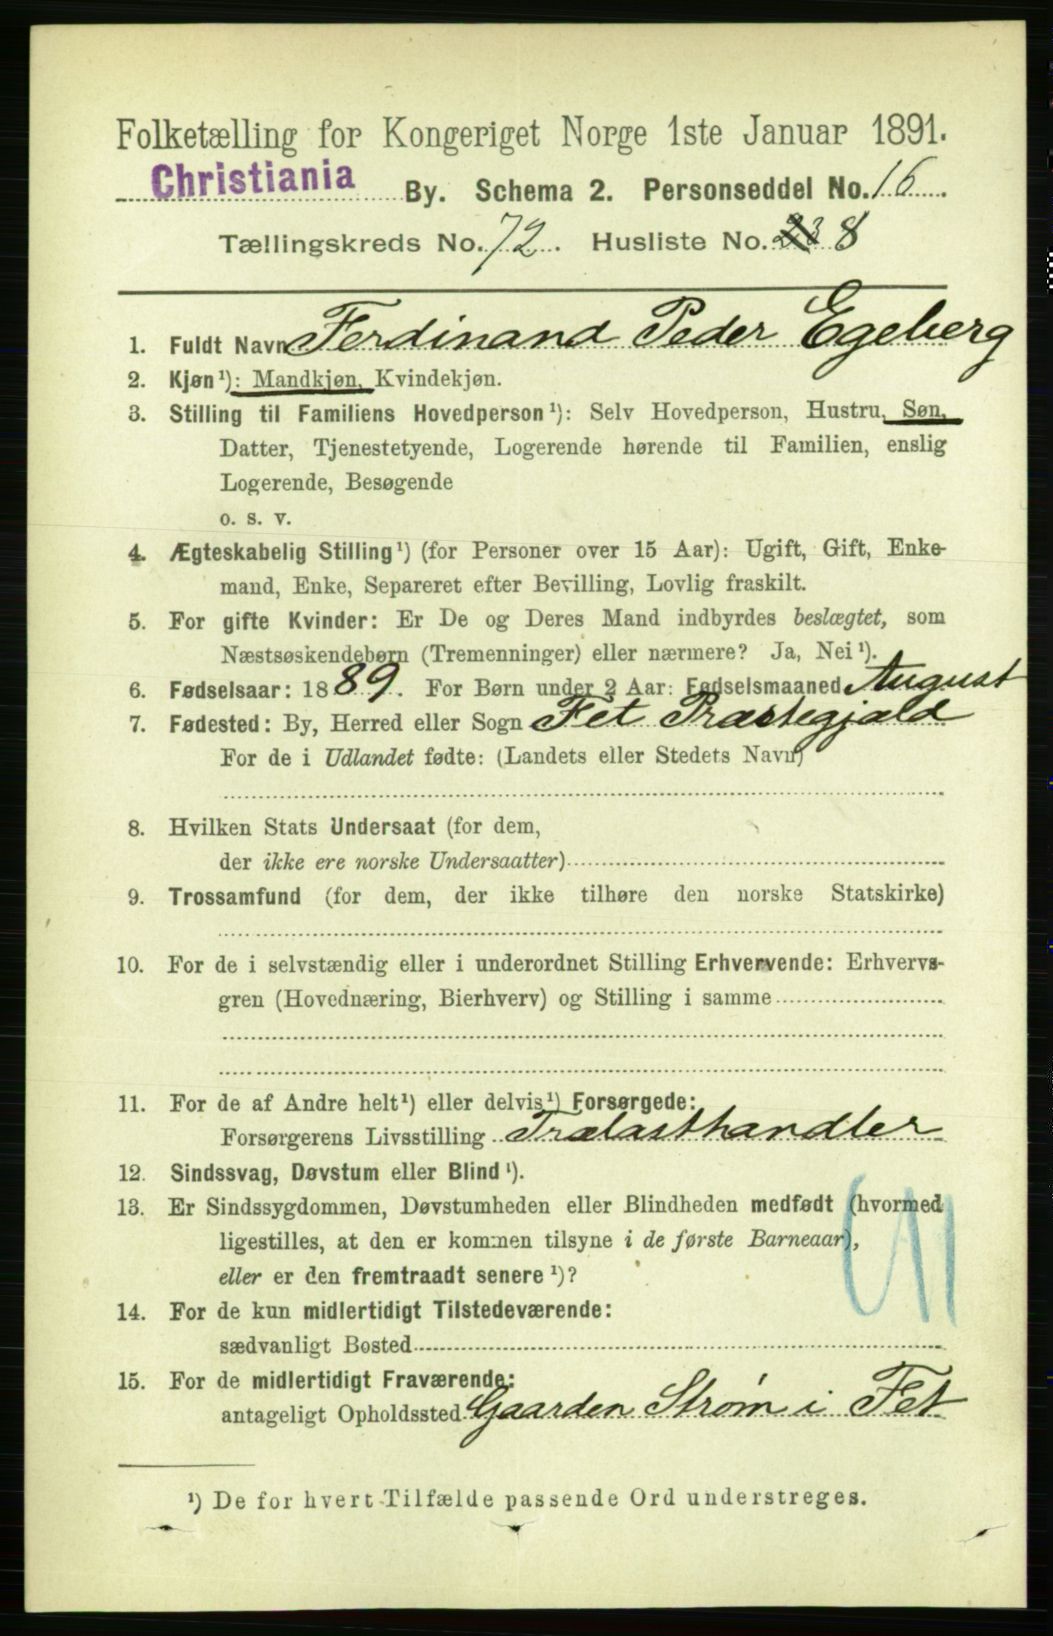 Folketælling for Kongeriget Norge 1ste Januar 1891.
Christiania By. Schema 2. Personseddel No. 16
Tællingskreds No. 72. Husliste No. 8
1. Fuldt Navn Ferdinand Peder Egeberg
2. Kjøn¹): Mandkjøn, Kvindekjøn.
3. Stilling til Familiens Hovedperson¹): Selv Hovedperson, Hustru, Søn,
Datter, Tjenestetyende, Logerende hørende til Familien, enslig
Logerende, Besøgende
o. s. v.
4. Ægteskabelig Stilling¹) (for Personer over 15 Aar): Ugift, Gift, Enke-
mand, Enke, Separeret efter Bevilling, Lovlig fraskilt.
5. For gifte Kvinder: Er De og Deres Mand indbyrdes beslægtet, som
Næstsøskendebørn (Tremenninger) eller nærmere? Ja, Nei¹).
6. Fødselsaar: 1889. For Børn under 2 Aar: Fødselsmaaned August
7. Fødested: By, Herred eller Sogn Fet Præstegjæld
For de i Udlandet fødte: (Landets eller Stedets Navn)
8. Hvilken Stats Undersaat (for dem,
der ikke ere norske Undersaatter)
9. Trossamfund (for dem, der ikke tilhøre den norske Statskirke)
10. For de i selvstændig eller i underordnet Stilling Erhvervende: Erhvervs-
gren (Hovednæring, Bierhverv) og Stilling i samme
11. For de af Andre helt¹) eller delvis¹) Forsørgede:
Forsørgerens Livsstilling Trælasthandler
12. Sindssvag, Døvstum eller Blind¹).
13. Er Sindssygdommen, Døvstumheden eller Blindheden medfødt (hvormed
ligestilles, at den er kommen tilsyne i de første Barneaar),
eller er den fremtraadt senere¹)?
14. For de kun midlertidigt Tilstedeværende:
sædvanligt Bosted
15. For de midlertidigt Fraværende:
antageligt Opholdssted Gaarden Strøm i Fet
¹) De for hvert Tilfælde passende Ord understreges.